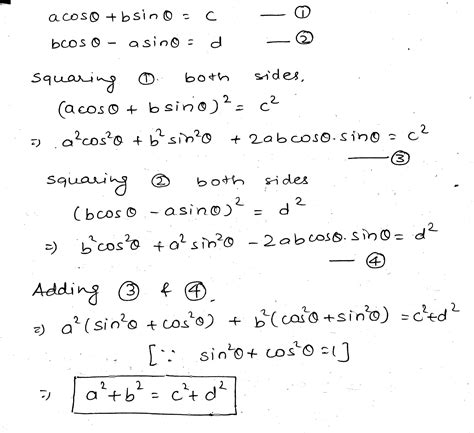 acosθ + bsinθ = c — ①
bcosθ - asinθ = d — ②
Squaring ① both sides,
(acosθ + bsinθ)² = c²
=) a²cos²θ + b²sin²θ + 2abcosθ.sinθ = c²
— ③
Squaring ② both sides
(bcosθ - asinθ)² = d²
=) b²cos²θ + a²sin²θ - 2abcosθ.sinθ = d²
— ④
Adding ③ & ④,
=) a²(sin²θ + cos²θ) + b²(cos²θ + sin²θ) = c²+d²
[∵ sin²θ + cos²θ = 1]
=) a²+b² = c²+d²